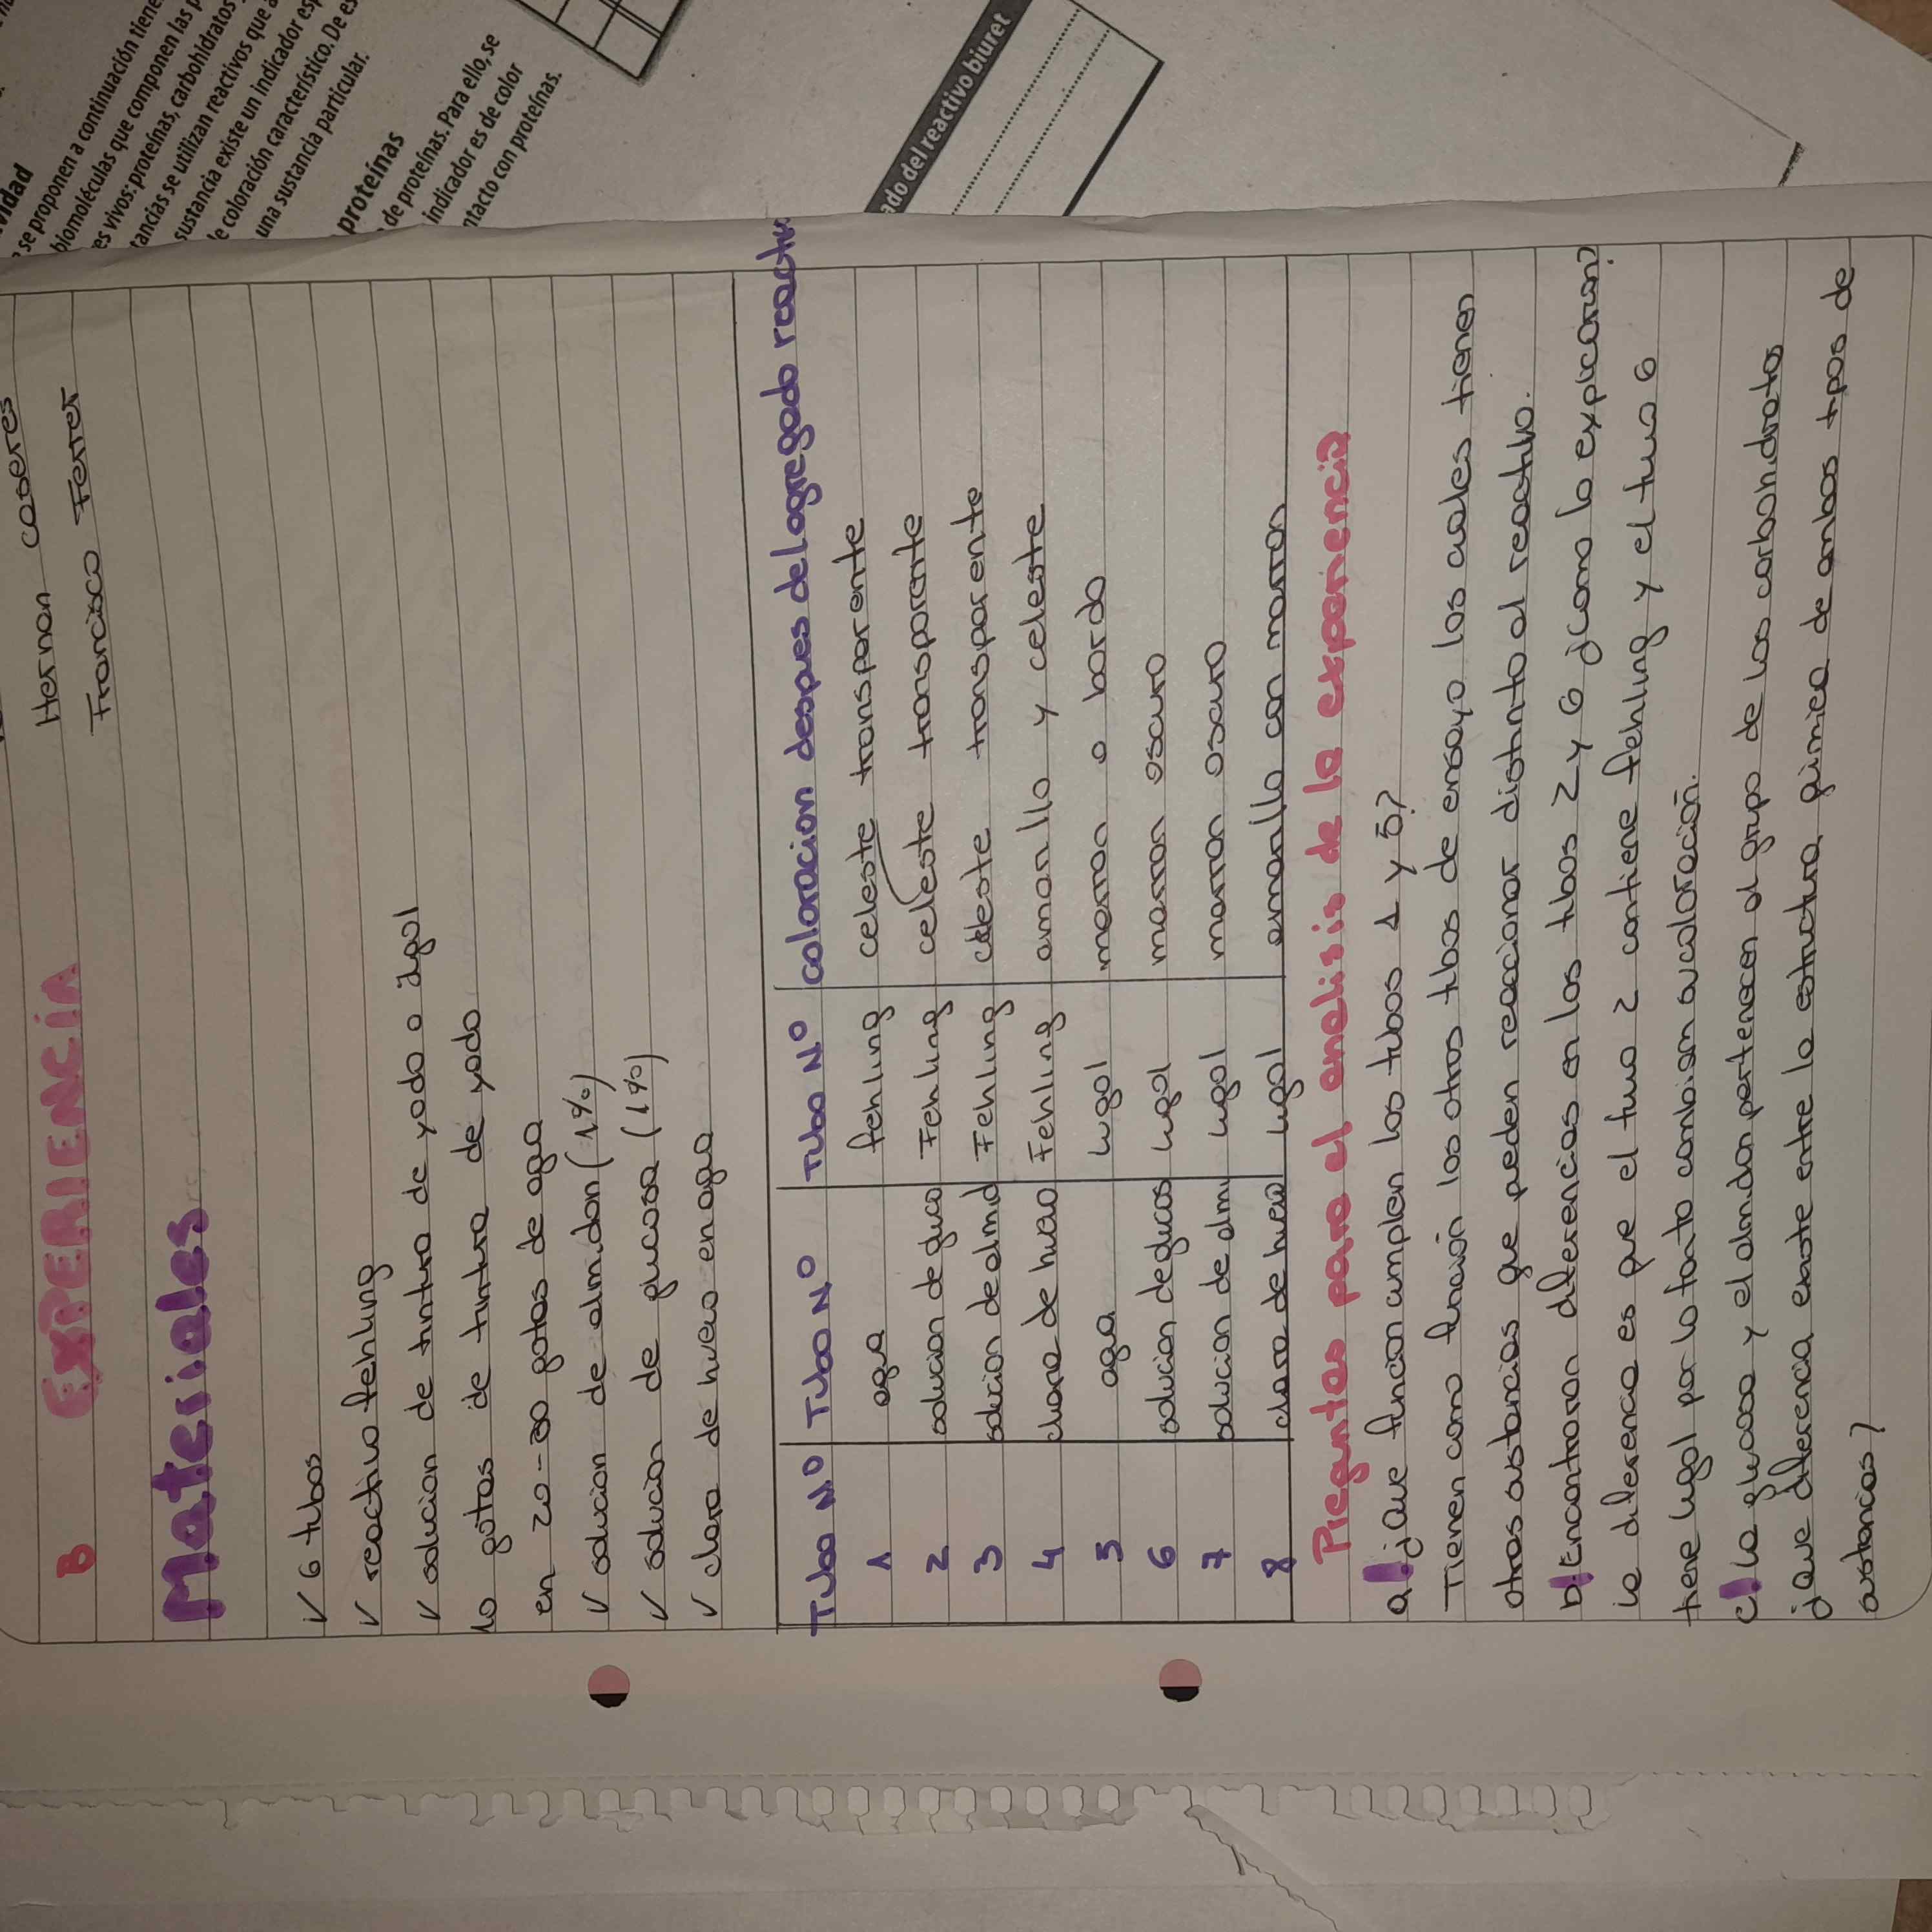 vidad
se proponen a continuación tiene
biomoléculas que componen las p
es vivos: proteínas, carbohidratos
tancias se utilizan reactivos que a
sustancia existe un indicador esp
le coloración característico. De es
una sustancia particular.
proteínas
de proteínas. Para ello, se
indicador es de color
ntacto con proteínas.
ado del reactivo biuret
Hernan caseres
Francisco Ferrer
B EXPERIENCIA
Materiales
✓ 6 tubos
✓ reactivo fehling
✓ solucion de tintura de yodo o lgol
10 gotas de tintura de yodo
en 20-30 gotas de agua
✓ solucion de almidon (1%)
✓ solucion de glucosa (1%)
✓ clara de huevo en agua
Tubo N.O Tubo N.O Tubo N.O coloracion despues del agregado reactiv
1 agua fehling celeste transparente
2 solucion de gluco Fehling celeste transparente
3 solucion de almid Fehling celeste transparente
4 clara de huevo Fehling amarillo y celeste
5 agua lugol marron o bordo
6 solucion de glucos lugol marron oscuro
7 solucion de almi lugol marron oscuro
8 clara de huevo lugol amarillo con marron
Preguntas para el analisis de la experiencia
a. ¿Que funcion cumplen los tubos 1 y 5?
Tienen como función los otros tbos de ensayo los cuales tienen
otras sustancias que pueden reaccionar distinto al reactivo.
b. Encontraron diferencias en los tbos 2 y 6 ¿como lo explicarian?
la diferencia es que el tuvo 2 contiene fehling y el tuvo 6
tiene lugol por lo tanto cambian su coloración.
c. la glucosa y el almidon pertenecen al grupo de los carbohidratos
¿Que diferencia existe entre la estructura quimica de ambos tipos de
sustancias?